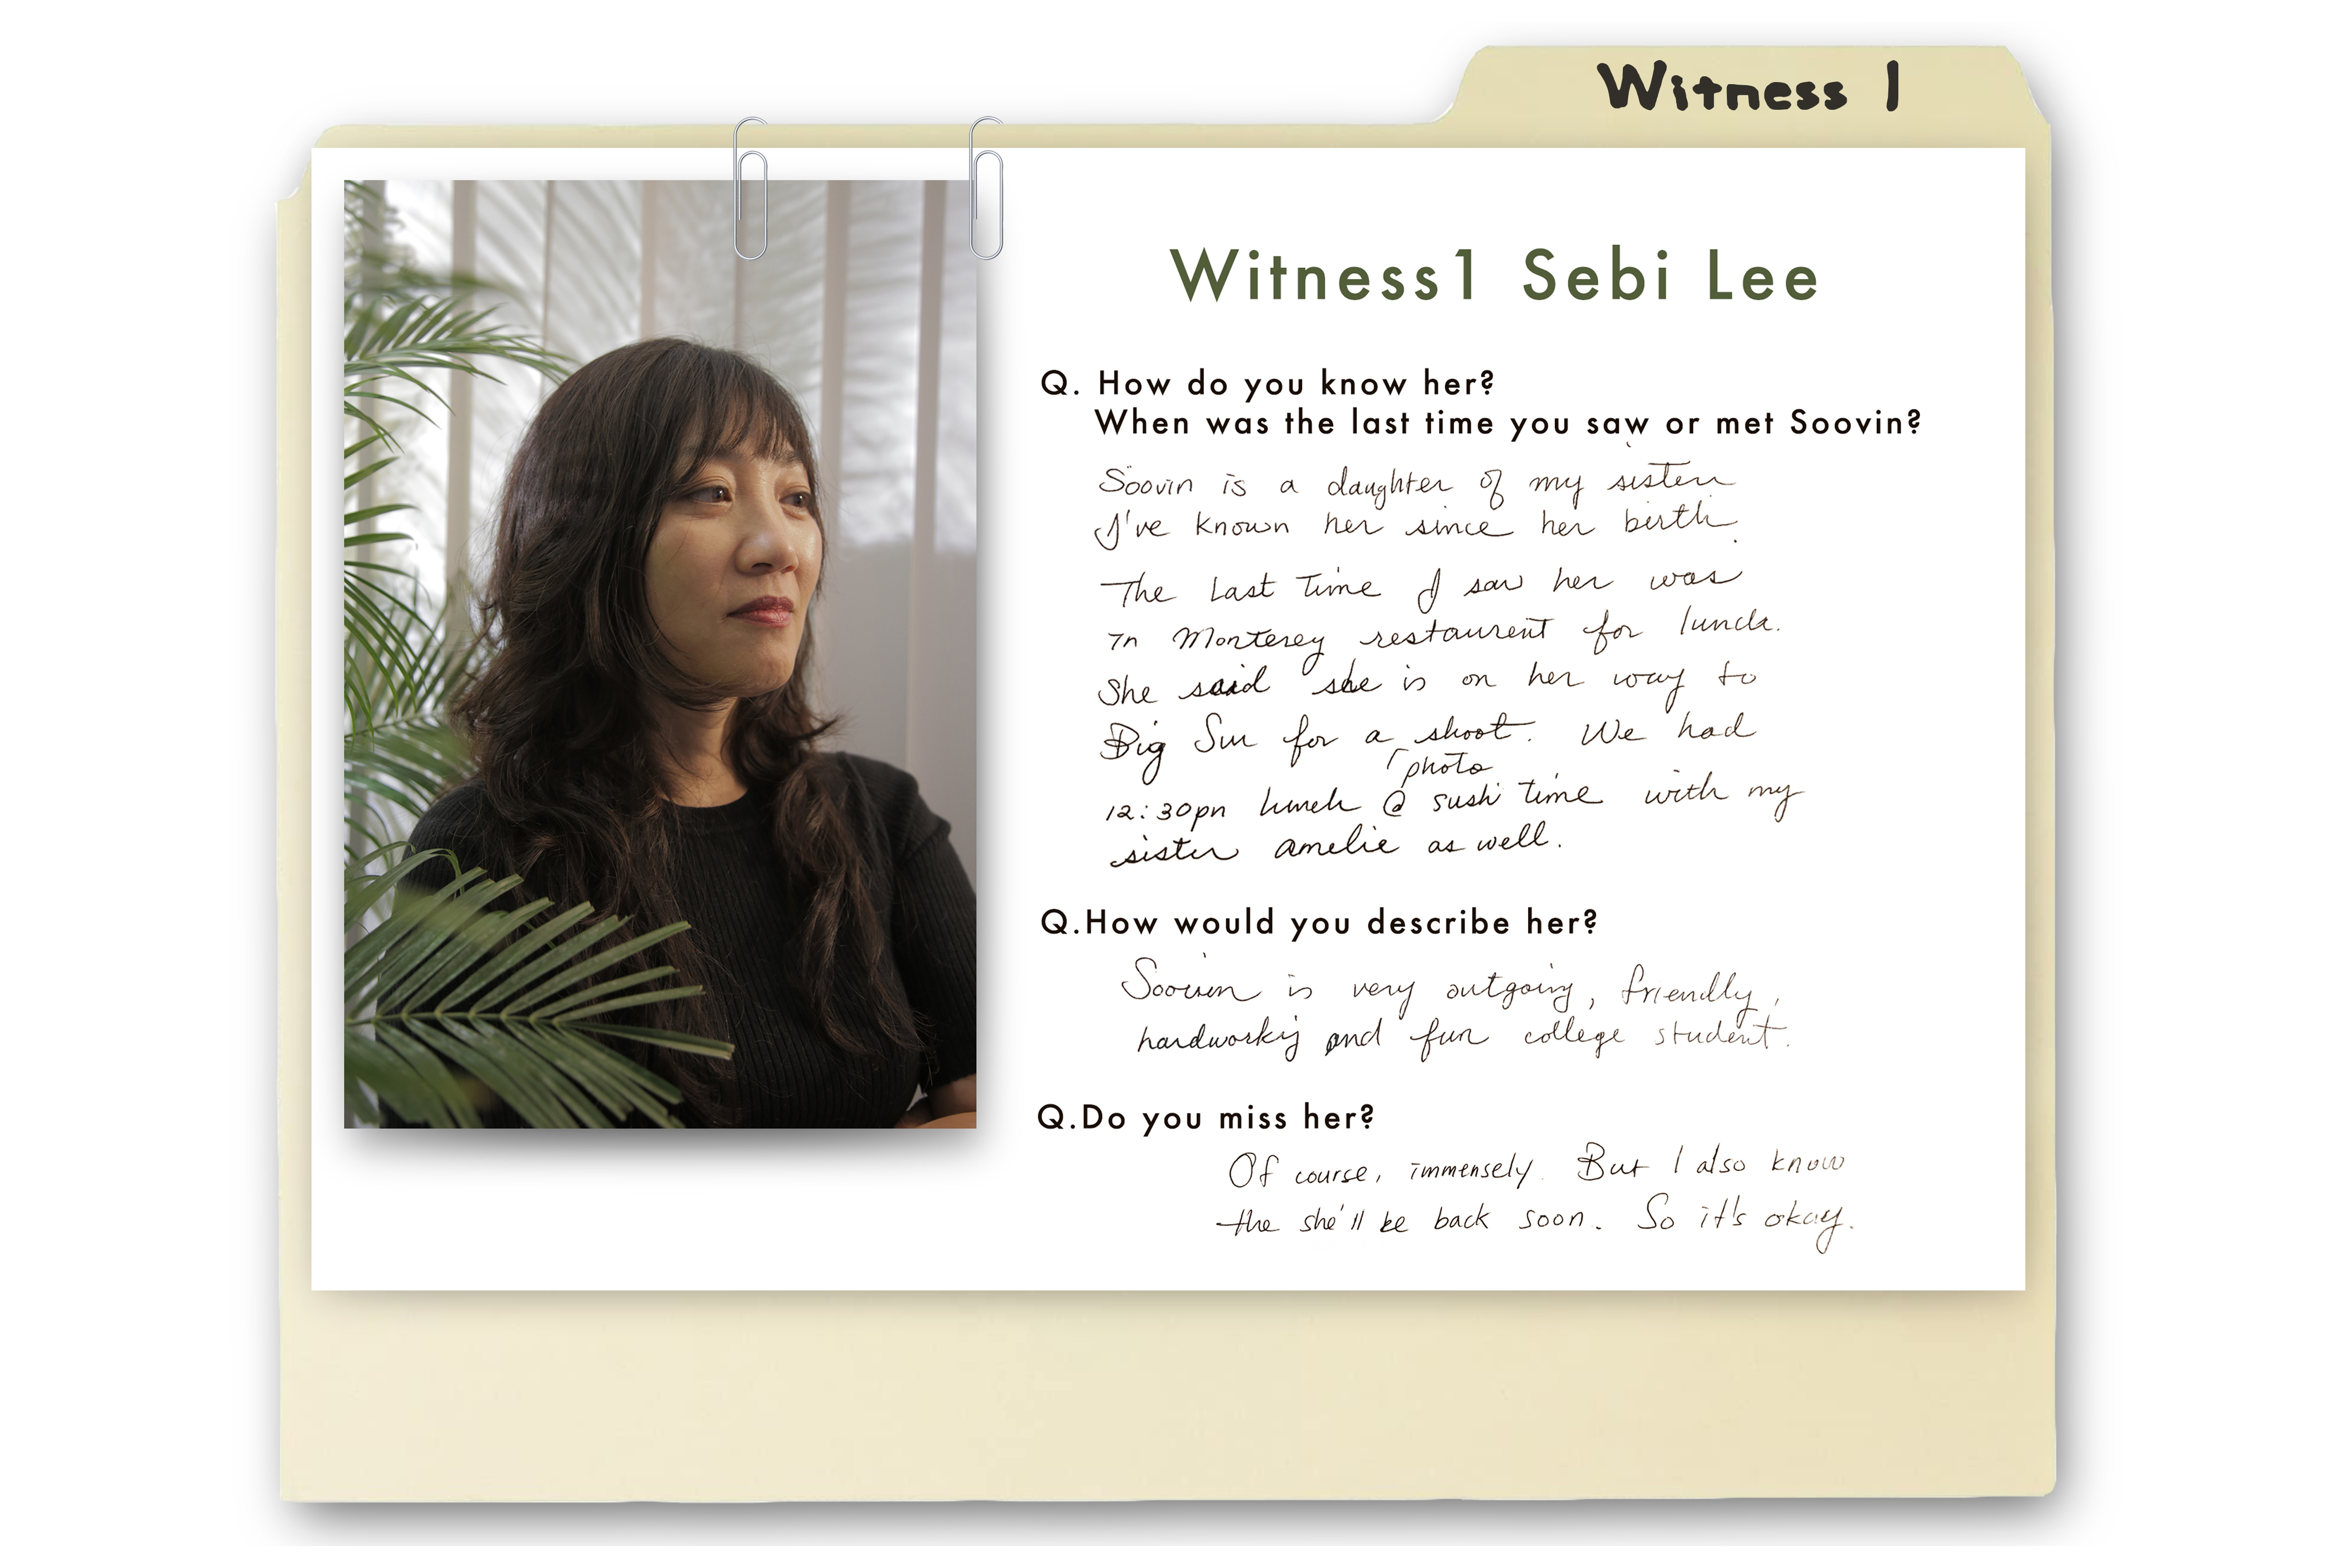 Witness 1
Witness1 Sebi Lee
Q. How do you know her?
When was the last time you saw or met Soovin?
Soovin is a daughter of my sister
I've known her since her birth.
The last time I saw her was
in Monterey restaurent for lunch.
She said she is on her way to
Big Sur for a shoot. We had
photo
12:30pm lunch @ sushi time with my
sister amelie as well.
Q.How would you describe her?
Soovin is very outgoing, friendly,
hardworkig and fun college student.
Q.Do you miss her?
Of course, immensely. But I also know
the she'll be back soon. So it's okay.